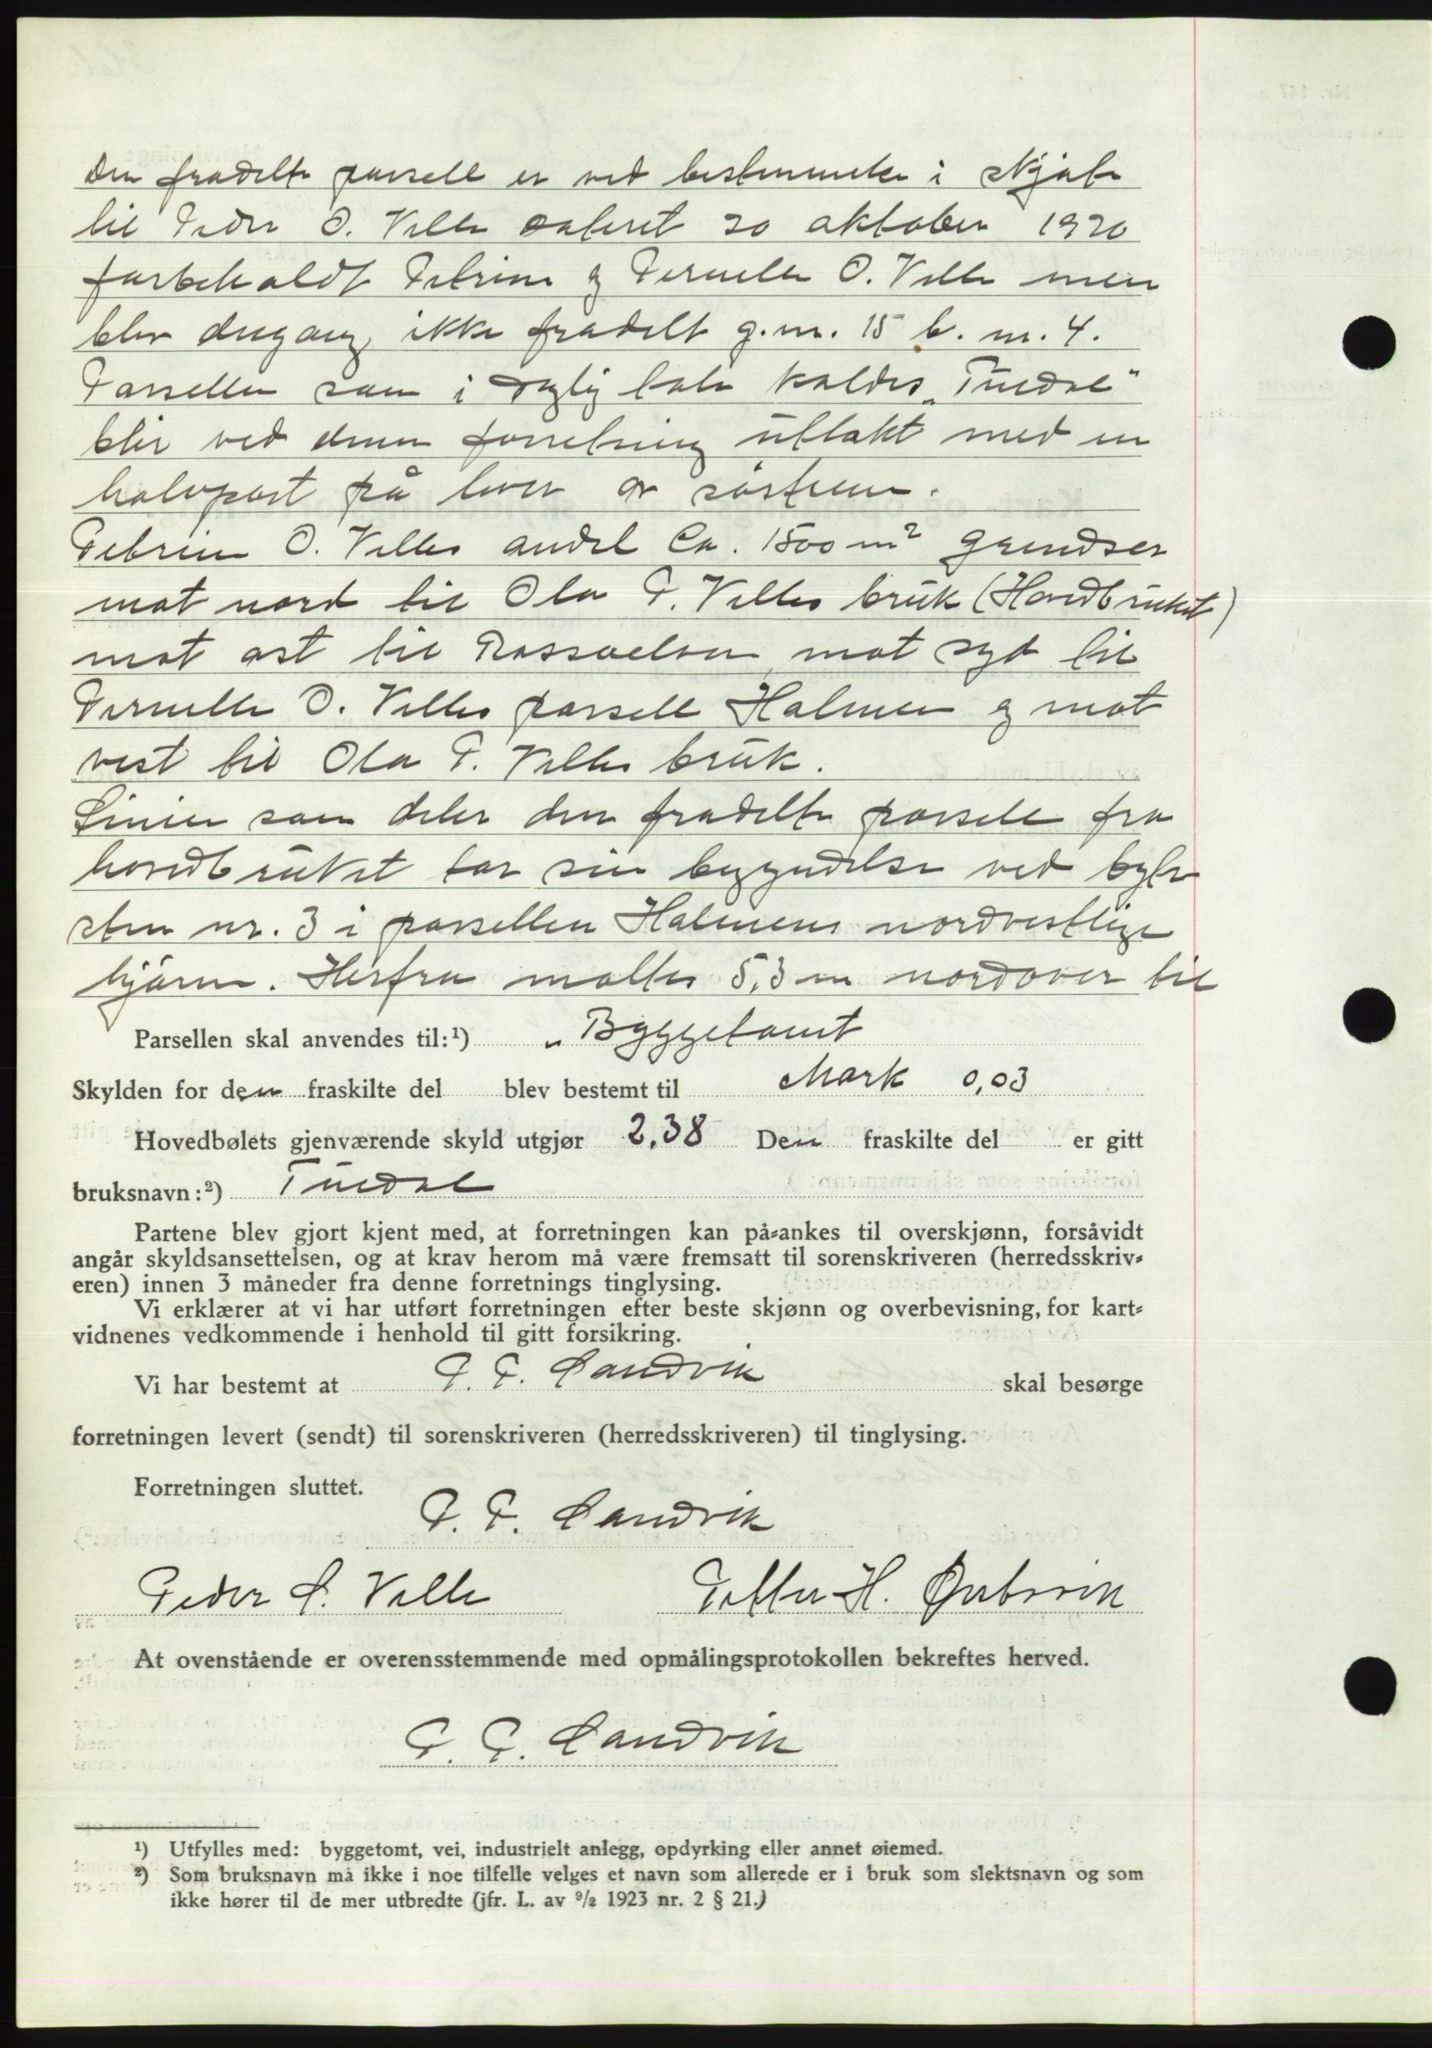 Den fradelte parsell er ved bestemmelse i skjøte
til Peder O. Velle datert 20 oktober 1920
forbeholdt Petrine og Pernelle O. Velle men
blev dengang ikke fradelt g.nr. 15 b.nr. 4.
Parsellen som i daglig tale kaldes „Tuedal"
blir ved denne forretning uttakt med en
halvpart på hver av søstrene.
Petrine O. Velles andel Ca. 1500 m² grendser
mot nord til Ola P. Velles bruk (Hovedbruket)
mot øst til Rossaelven mot syd til
Pernelle O. Velles parsell Holmen og mot
vest til Ola P. Velles bruk.
Linien som deler den fradelte parsell fra
hovedbruket tar sin begyndelse ved bytes
sten nr. 3 i parsellen Holmens nordvestlige
hjørne. Herfra måltes 5,3 m nordover til
Parsellen skal anvendes til:¹) „Byggetomt
Skylden for den fraskilte del blev bestemt til Mark 0,03
Hovedbølets gjenværende skyld utgjør 2,38 Den fraskilte del er gitt
bruksnavn:²) Tuedal
Partene blev gjort kjent med, at forretningen kan på-ankes til overskjønn, forsåvidt
angår skyldsansettelsen, og at krav herom må være fremsatt til sorenskriveren (herredsskriv-
eren) innen 3 måneder fra denne forretnings tinglysing.
Vi erklærer at vi har utført forretningen efter beste skjønn og overbevisning, for kart-
vidnenes vedkommende i henhold til gitt forsikring.
Vi har bestemt at P. P. Sandvik skal besørge
forretningen levert (sendt) til sorenskriveren (herredsskriveren) til tinglysing.
Forretningen sluttet.
P. P. Sandvik
Peder S. Velle Petter H. Ørtsvik
At ovenstående er overensstemmende med opmålingsprotokollen bekreftes herved.
P. P. Sandvik
¹) Utfylles med: byggetomt, vei, industrielt anlegg, opdyrking eller annet øiemed.
²) Som bruksnavn må ikke i noe tilfelle velges et navn som allerede er i bruk som slektsnavn og som
ikke hører til de mer utbredte (jfr. L. av ⁹/₂ 1923 nr. 2 § 21.)